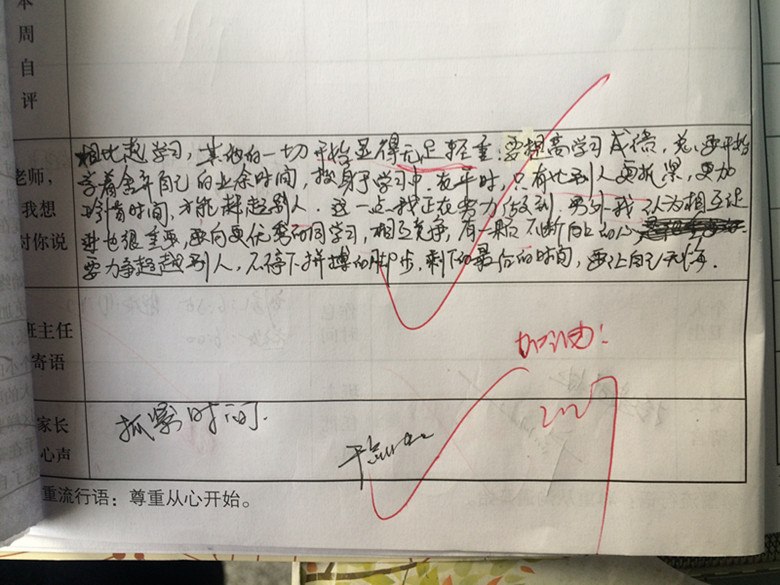 本
周
自
评
老师,
我想
对你说
相比起学习,其他的一切开始显得无足轻重;要提高学习成绩,总要开始
学着舍弃自己的业余时间,投身于学习中。在平时,只有比别人更抓紧,更加
珍惜时间,才能赶超别人。这一点我正在努力做到。另外我认为相互促
进也很重要,要向更优秀的同学习,相互竞争,有一颗不断向上的心
要力争超越别人,不停下拼搏的脚步,剩下最后的时间,要让自己无悔。
班主任
寄语
加油!
家长
心声
抓紧时间.
重流行语:尊重从心开始。